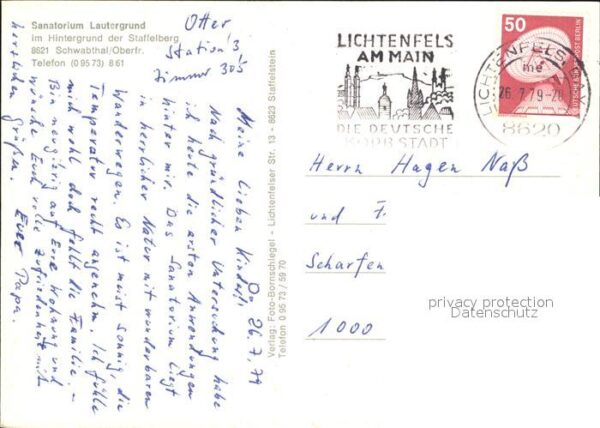 Sanatorium Lautergrund
im Hintergrund der Staffelberg
8621 Schwabthal/Oberfr.
Telefon (0 95 73) 8 61
Otter
Station 3
Zimmer 305
Do, 26.7.79
Meine lieben Kinder!
Nach gründlicher Untersuchung habe
ich heute die ersten Anwendungen
hinter mir. Das Sanatorium liegt
in herrlicher Natur mit wunderbaren
Wanderwegen. Es ist meist sonnig, die
Temperatur recht angenehm. Ich fühle
mich wohl, doch fehlt die Familie. –
Bin neugierig auf Eure Wohnung und
wünsche Euch volle Zufriedenheit mit
herzlichen Grüßen. Euer Papa.
Verlag: Foto-Bornschlegel - Lichtenfelser Str. 13 - 8623 Staffelstein
Telefon 0 95 73 / 59 70
LICHTENFELS
AM MAIN
DIE DEUTSCHE
KORBSTADT
LICHTENFELS
26.7.79-20
me
8620
50
DEUTSCHE BUNDESPOST BERLIN
Herrn Hagen Naß
und F.
Scharfen
1000
privacy protection
Datenschutz